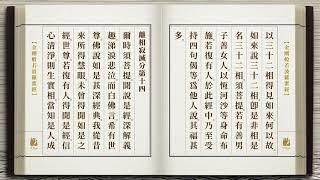 金剛般若波羅蜜經
以三十二相得見如來何以故
如來說三十二相即是非相是
名三十二相須菩提若有善男
子善女人以恆河沙等身命布
施若復有人於此經中乃至受
持四句偈等為他人說其福甚
離相寂滅分第十四
爾時須菩提聞說是經深解義
趣涕淚悲泣而白佛言希有世
尊佛說如是甚深經典我從昔
來所得慧眼未曾得聞如是之
經世尊若復有人得聞是經信
心清淨則生實相當知是人成
金剛般若波羅蜜經